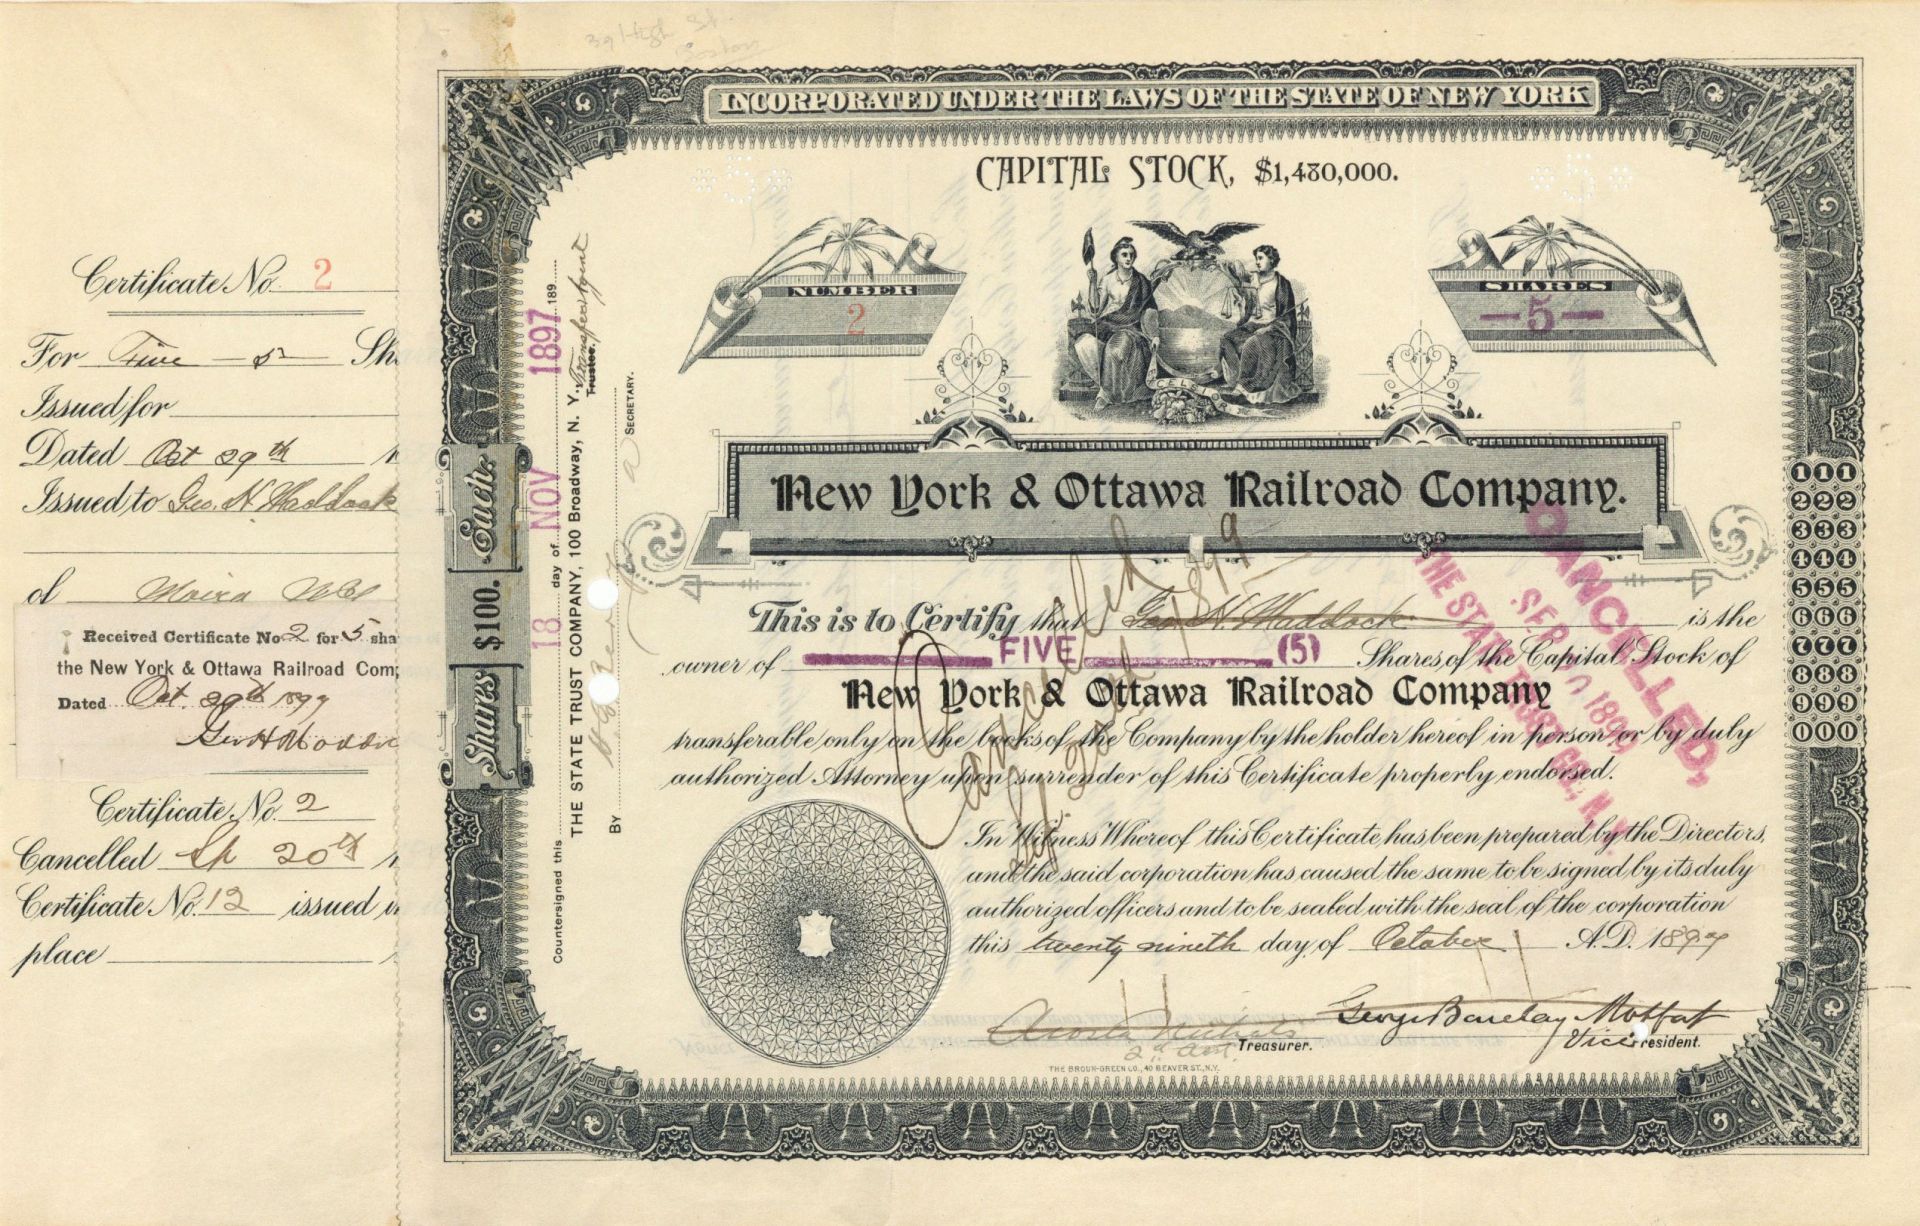 39 High St.
Boston
Certificate No. 2
For Five — 5 — Sha
Issued for
Dated Oct 29th
Issued to Geo. H. Maddock
of Moira N.Y.
Received Certificate No. 2 for 5 sha
the New York & Ottawa Railroad Comp
Dated Oct. 29th 1897
Geo H Maddock
Certificate No. 2
Cancelled Sp 20th
Certificate No. 12 issued in
place
INCORPORATED UNDER THE LAWS OF THE STATE OF NEW YORK
CAPITAL STOCK, $1,480,000.
*5*
*5*
NUMBER
2
SHARES
— 5 —
EXCELSIOR
New York & Ottawa Railroad Company.
This is to Certify that Geo. H. Maddock is the
owner of FIVE (5) Shares of the Capital Stock of
New York & Ottawa Railroad Company
transferable only on the books of the Company by the holder hereof in person or by duly
authorized Attorney upon surrender of this Certificate properly endorsed.
In Witness Whereof this Certificate has been prepared by the Directors,
and the said corporation has caused the same to be signed by its duly
authorized officers and to be sealed with the seal of the corporation
this twenty nineth day of October A.D. 1897
George Barclay Moffat
Treasurer.
Vice President.
THE BROUN-GREEN CO., 40 BEAVER ST., N.Y.
Shares $100. Each.
Countersigned this 18 day of NOV 1897 189
THE STATE TRUST COMPANY, 100 Broadway, N. Y. Trustee. Transfer Agent
By
SECRETARY.
Cancelled
Sep. 20th 1899
CANCELLED,
SEP 20 1899
THE STATE TRUST CO., N.Y.
111
222
333
444
555
666
777
888
999
000